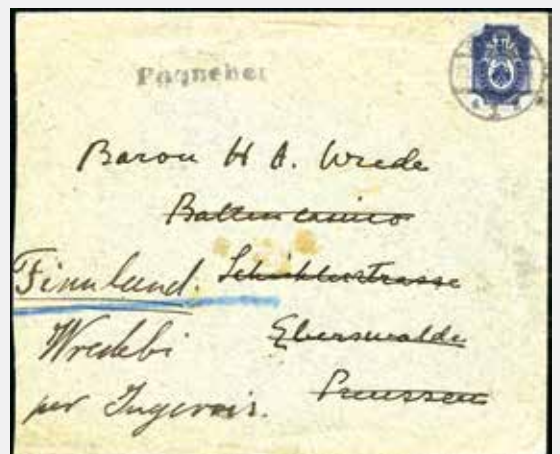 Paquebot
Baron H A. Wrede
Finnland. Schicklerstrasse
Wredebi Eberswalde
per Ingerois. Preussen